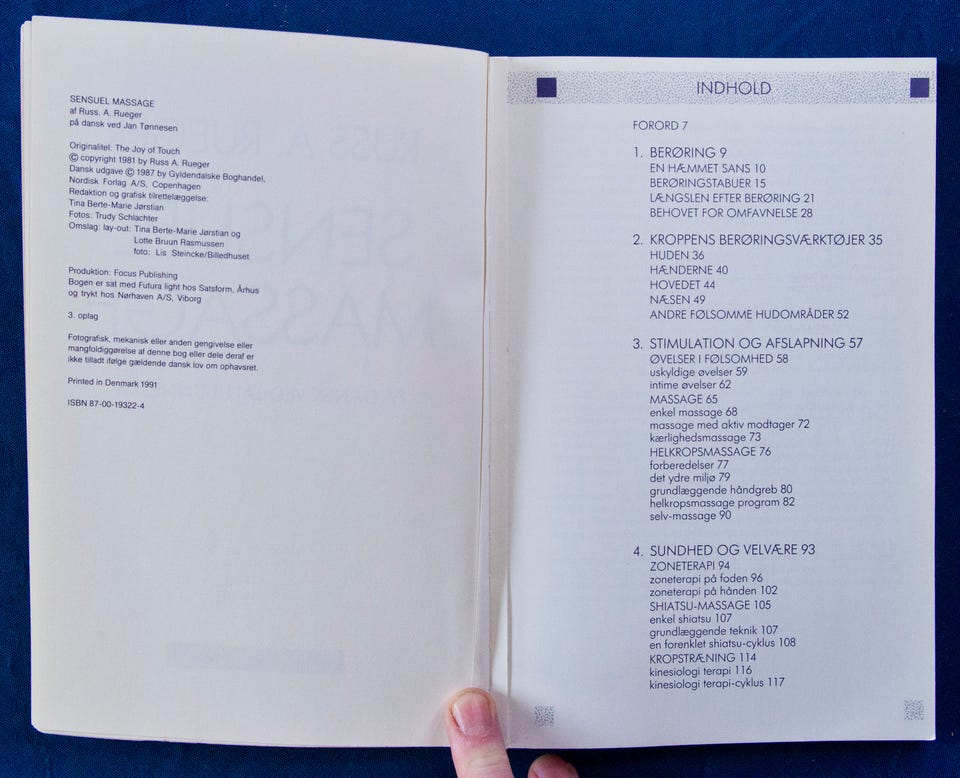 SENSUEL MASSAGE
af Russ. A. Rueger
på dansk ved Jan Tønnesen
Originaltitel: The Joy of Touch
© copyright 1981 by Russ A. Rueger
Dansk udgave © 1987 by Gyldendalske Boghandel,
Nordisk Forlag A/S, Copenhagen
Redaktion og grafisk tilrettelæggelse:
Tina Berte-Marie Jørstian
Fotos: Trudy Schlachter
Omslag: lay-out: Tina Berte-Marie Jørstian og
Lotte Bruun Rasmussen
foto: Lis Steincke/Billedhuset
Produktion: Focus Publishing
Bogen er sat med Futura light hos Satsform, Århus
og trykt hos Nørhaven A/S, Viborg
3. oplag
Fotografisk, mekanisk eller anden gengivelse eller
mangfoldiggørelse af denne bog eller dele deraf er
ikke tilladt ifølge gældende dansk lov om ophavsret.
Printed in Denmark 1991
ISBN 87-00-19322-4
INDHOLD
FORORD 7
1. BERØRING 9
EN HÆMMET SANS 10
BERØRINGSTABUER 15
LÆNGSLEN EFTER BERØRING 21
BEHOVET FOR OMFAVNELSE 28
2. KROPPENS BERØRINGSVÆRKTØJER 35
HUDEN 36
HÆNDERNE 40
HOVEDET 44
NÆSEN 49
ANDRE FØLSOMME HUDOMRÅDER 52
3. STIMULATION OG AFSLAPNING 57
ØVELSER I FØLSOMHED 58
uskyldige øvelser 59
intime øvelser 62
MASSAGE 65
enkel massage 68
massage med aktiv modtager 72
kærlighedsmassage 73
HELKROPSMASSAGE 76
forberedelser 77
det ydre miljø 79
grundlæggende håndgreb 80
helkropsmassage program 82
selv-massage 90
4. SUNDHED OG VELVÆRE 93
ZONETERAPI 94
zoneterapi på foden 96
zoneterapi på hånden 102
SHIATSU-MASSAGE 105
enkel shiatsu 107
grundlæggende teknik 107
en forenklet shiatsu-cyklus 108
KROPSTRÆNING 114
kinesiologi terapi 116
kinesiologi terapi-cyklus 117